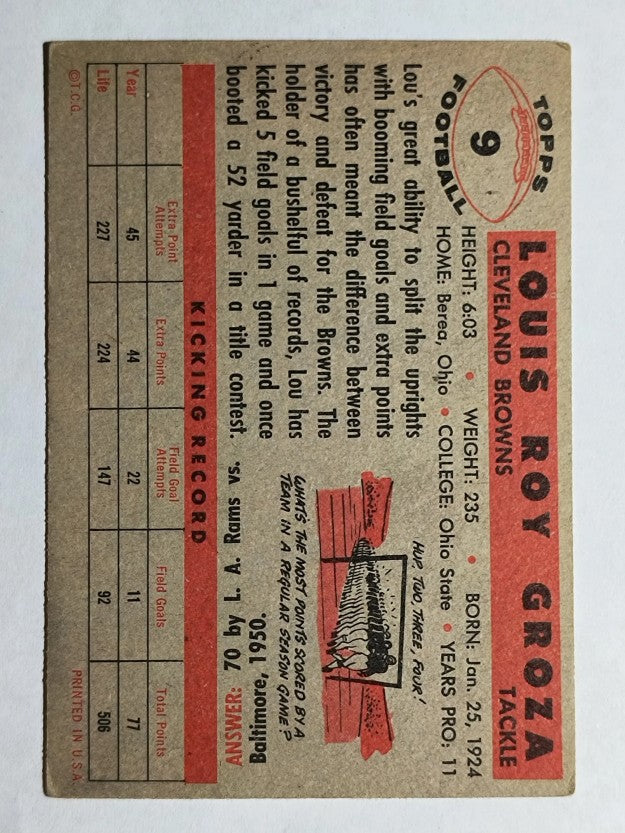 TOPPS
9
FOOTBALL
LOUIS ROY GROZA
CLEVELAND BROWNS TACKLE
HEIGHT: 6:03 • WEIGHT: 235 • BORN: Jan. 25, 1924
HOME: Berea, Ohio • COLLEGE: Ohio State • YEARS PRO: 11
Lou's great ability to split the uprights
with booming field goals and extra points
has often meant the difference between
victory and defeat for the Browns. The
holder of a bushelful of records, Lou has
kicked 5 field goals in 1 game and once
booted a 52 yarder in a title contest.
HUP, TWO, THREE, FOUR!
WHAT'S THE MOST POINTS SCORED BY A
TEAM IN A REGULAR SEASON GAME?
ANSWER: 70 by L. A. Rams vs.
Baltimore, 1950.
KICKING RECORD
Extra Point Attempts Extra Points Field Goal Attempts Field Goals Total Points
Year 45 44 22 11 77
Life 227 224 147 92 506
©T.C.G. PRINTED IN U.S.A.